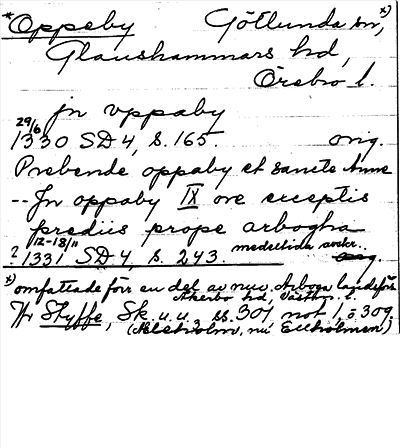 *Oppeby Götlunda sn, x)
Glanshammars hd,
Örebro l.
jn vppaby
29/6
1330 SD 4, s. 165. orig.
Prebende oppaby et sancte Anne
-- Jn oppaby IX ore exceptis
prediis prope arbogha
12-18/11
? 1331 SD 4, s. 243. medeltida avskr..
x) omfattade förr en del av nuv. Arboga landsförs.
Åkerbo hd, Västm. l.
Tr Styffe, Sk. u. u., ss. 301 not 1, o 309.